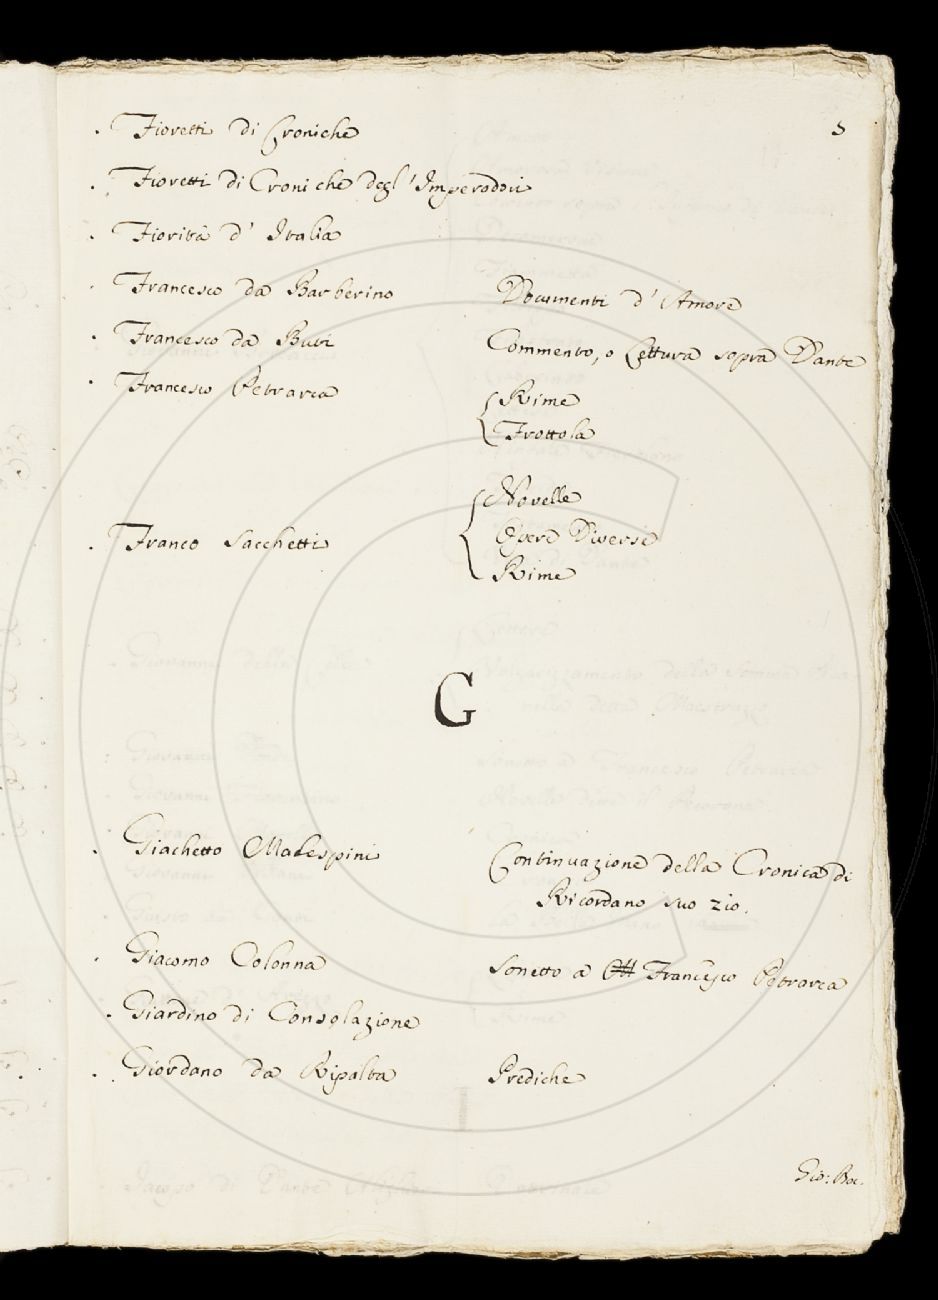 5
Fioretti di Croniche
Fioretti di Croniche degl' Imperadori
Fiorità d' Italia
Francesco da Barberino Documenti d' Amore
Francesco da Buti Commento, o Lettura sopra Dante
Francesco Petrarca { Rime
Frottola
Franco Sacchetti { Novelle
Opere Diverse
Rime
G
Giachetto Malespini Continuazione della Cronica di
Ricordano suo zio.
Giacomo Colonna Sonetto a Francesco Petrarca
Giardino di Consolazione
Giordano da Ripalta Prediche
Gio: Boc.